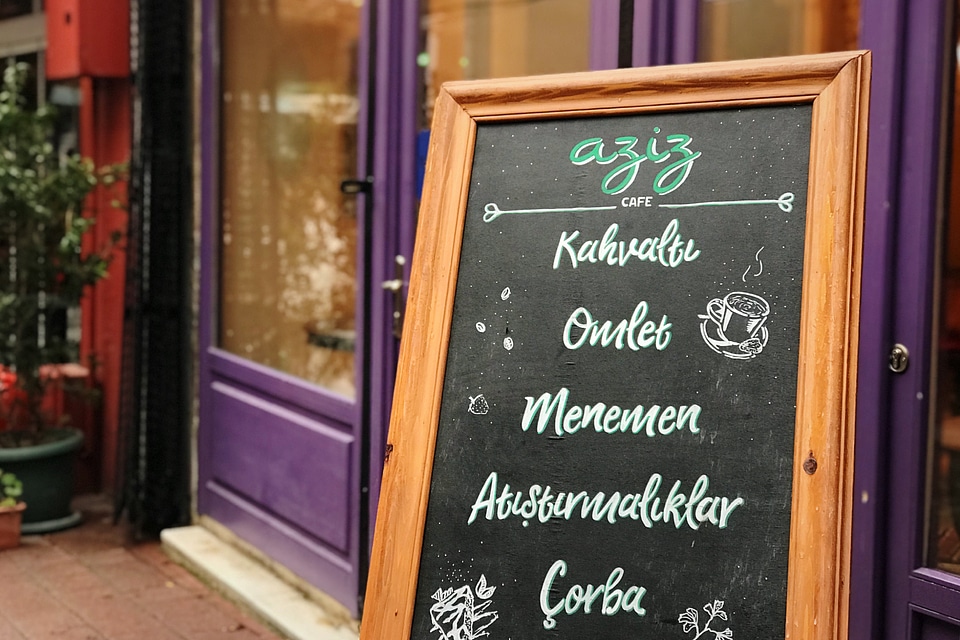 aziz
CAFE
Kahvaltı
Omlet
Menemen
Atıştırmalıklar
Çorba